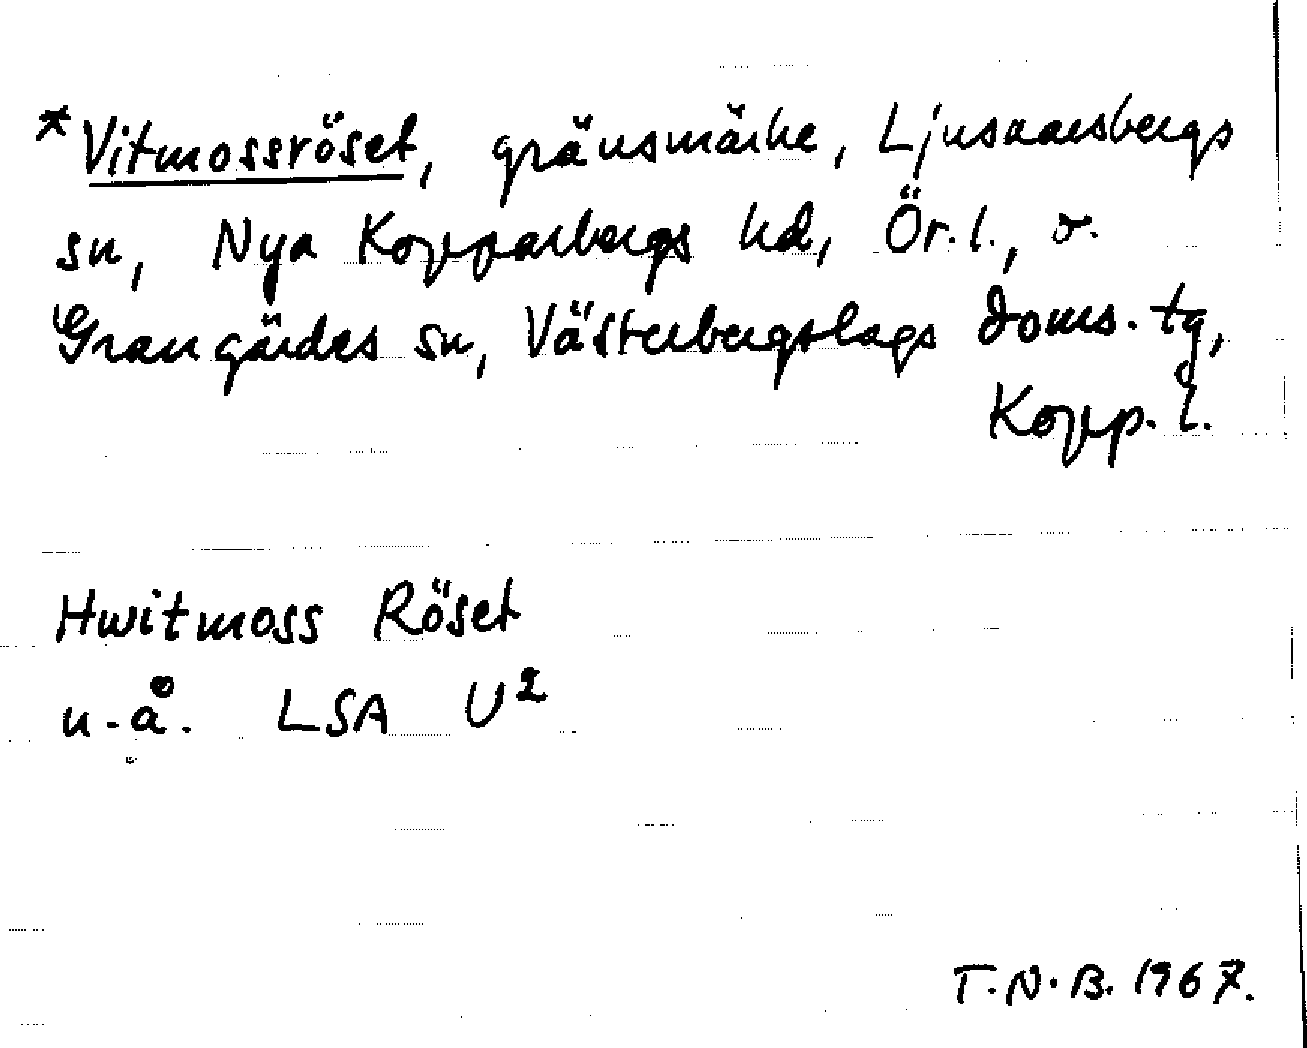 *Vitmossröset, gränsmärke, Ljusnarsbergs
sn, Nya Kopparbergs hd, Ör.l., o.
Grangärdes sn, Västerbergslags doms. tg,
Kopp. l.
Hwitmoss Röset
u.å. LSA U²
T.N.B. 1967.